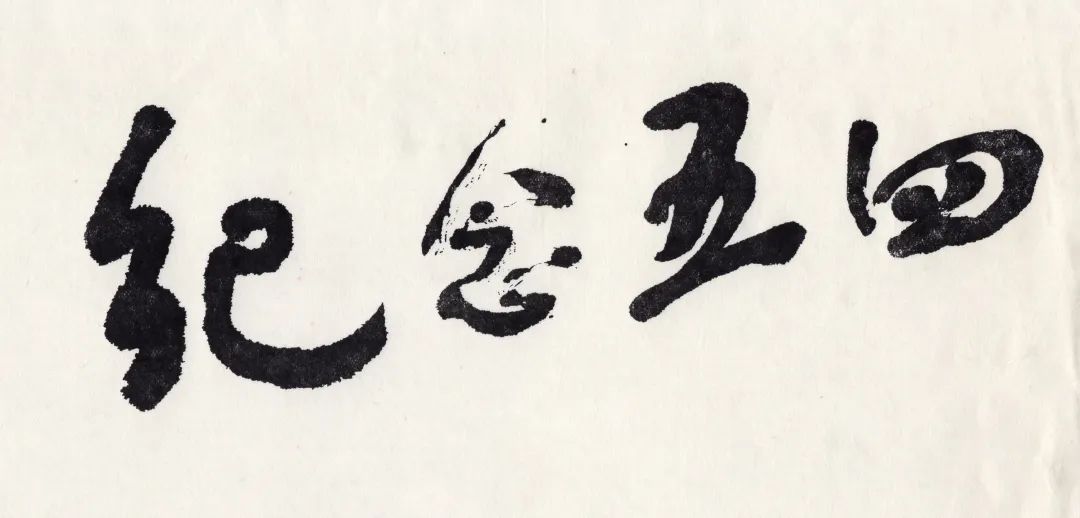 纪念五四